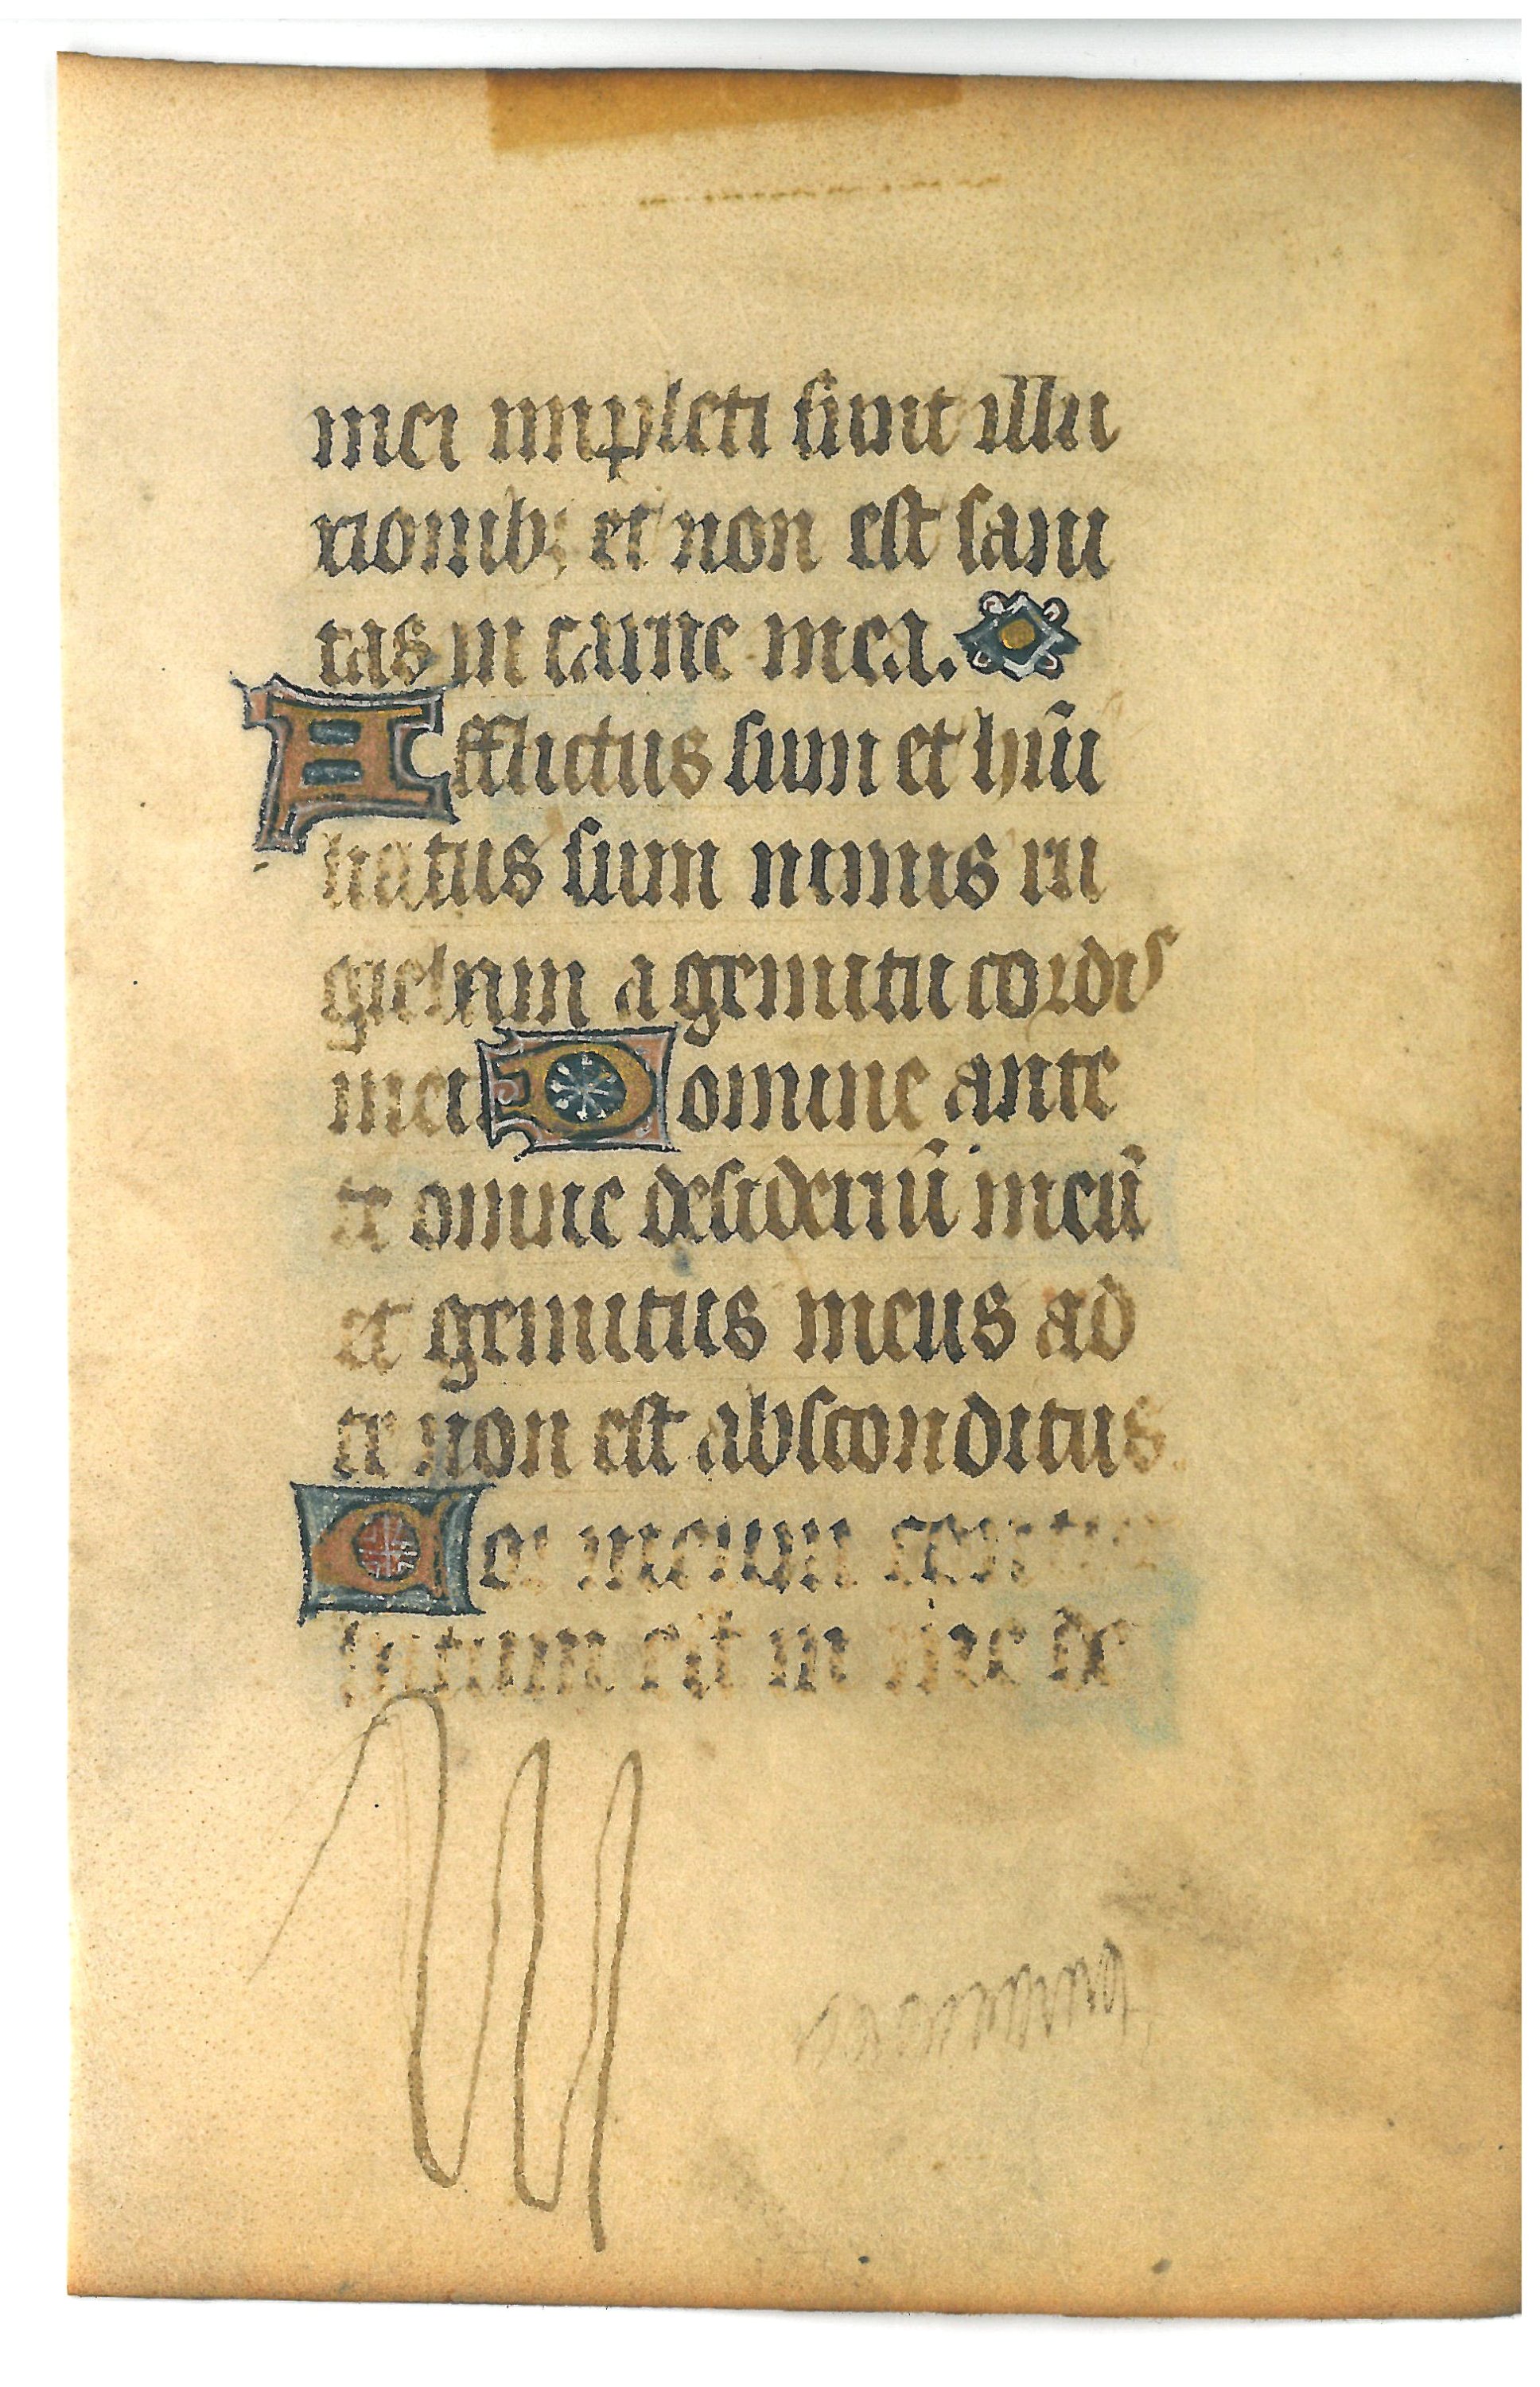 mei impleti sunt illu
sionib; et non est sani
tas in carne mea.
Afflictus sum et hūi
liatus sum nimis ru
giebam a gemitu cordis
mei Domine ante
te omne desideriū meū
et gemitus meus ad
te non est absconditus.
Cor meum contur
batum est in me de